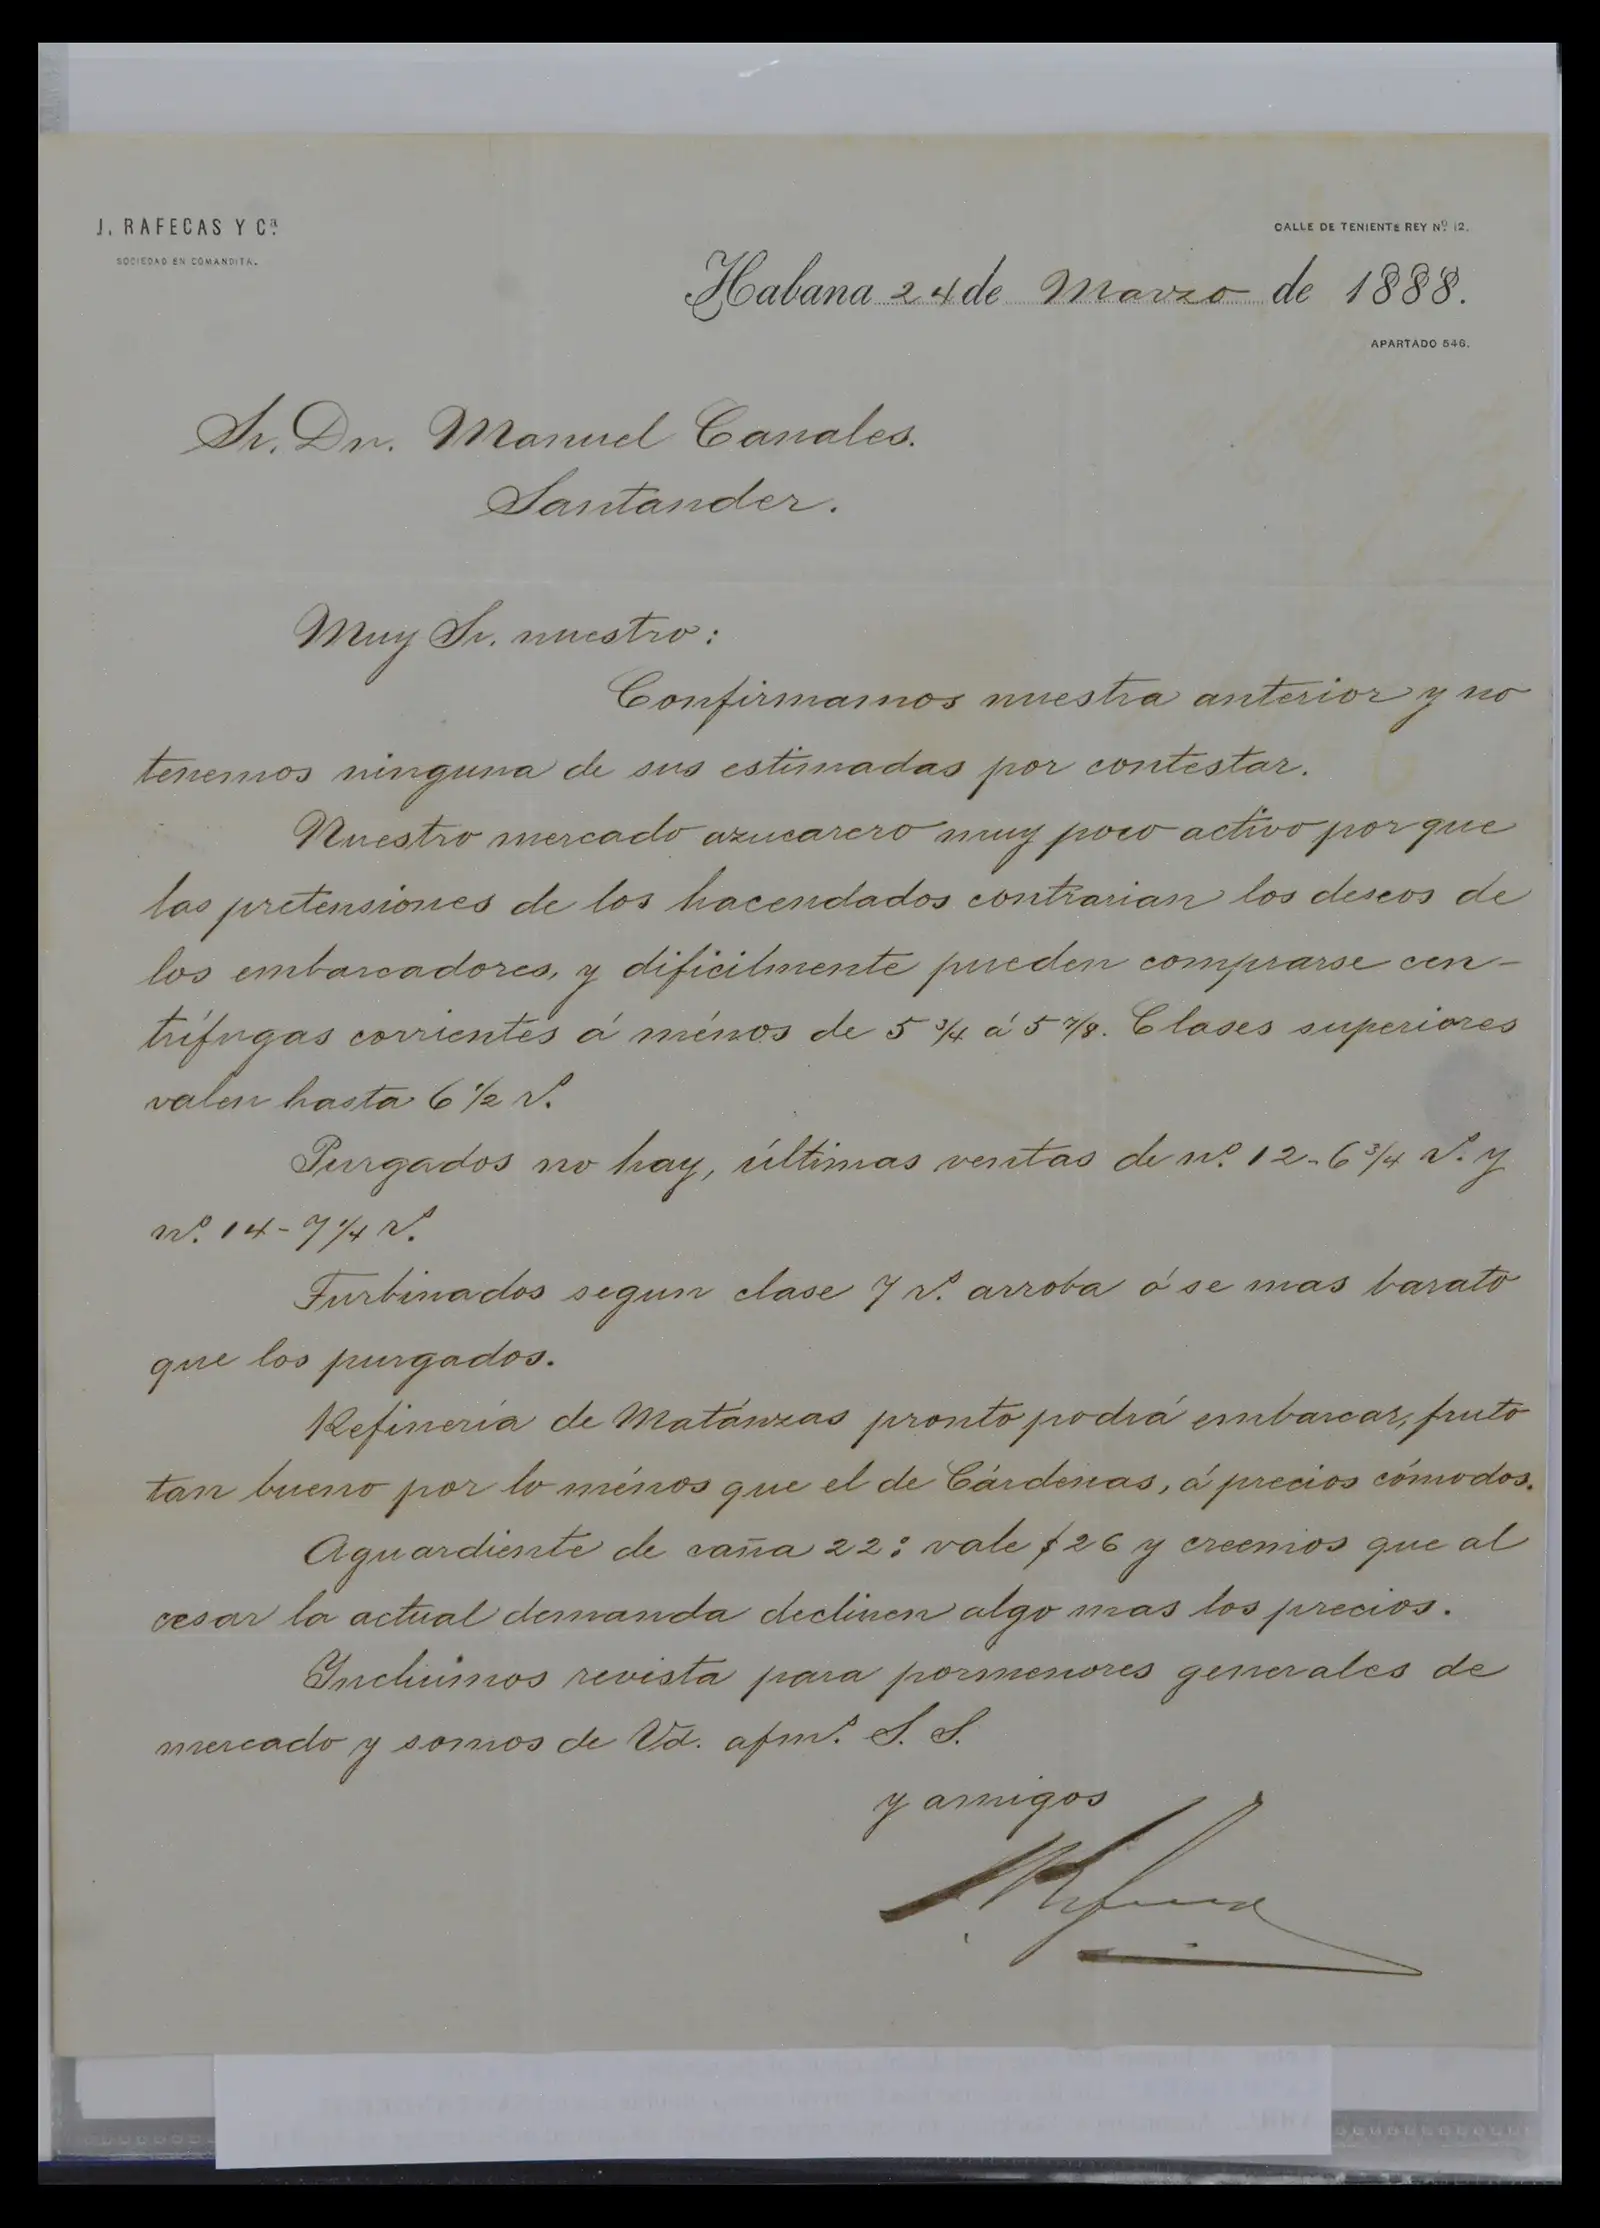 J. RAFECAS Y Cª.
SOCIEDAD EN COMANDITA.
CALLE DE TENIENTE REY Nº. 12.
Habana 24 de Marzo de 1888.
APARTADO 546.
Sr. Dn. Manuel Canales.
Santander.
Muy Sr. nuestro:
Confirmamos nuestra anterior y no
tenemos ninguna de sus estimadas por contestar.
Nuestro mercado azucarero muy poco activo por que
las pretensiones de los hacendados contrarian los deseos de
los embarcadores, y dificilmente pueden comprarse cen-
trífugas corrientes á ménos de 5 3/4 á 5 7/8. Clases superiores
valen hasta 6 1/2 rs.
Purgados no hay, últimas ventas de nº. 12 - 6 3/4 rs. y
nº. 14 - 7 1/4 rs.
Turbinados segun clase 7 rs. arroba ó se mas barato
que los purgados.
Refinería de Matánzas pronto podrá embarcar, fruto
tan bueno por lo ménos que el de Cárdenas, á precios cómodos.
Aguardiente de caña 22º: vale $26 y creemos que al
cesar la actual demanda declinen algo mas los precios.
Incluimos revista para pormenores generales de
mercado y somos de Vd. afmos. S. S.
y amigos